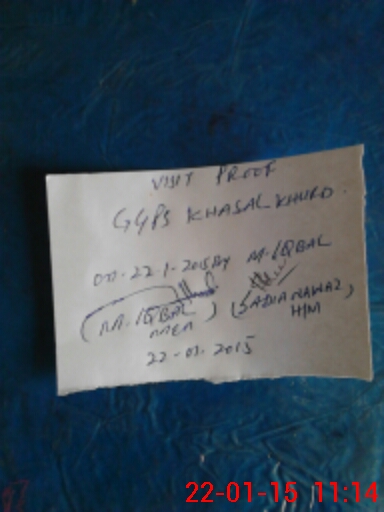 VISIT PROOF
GGPS KHASAL KHURD
on-22-1-2015 By M. IQBAL
(M. IQBAL) (SADIA NAWAZ)
MEA H/M
22-01-2015
22-01-15 11:14